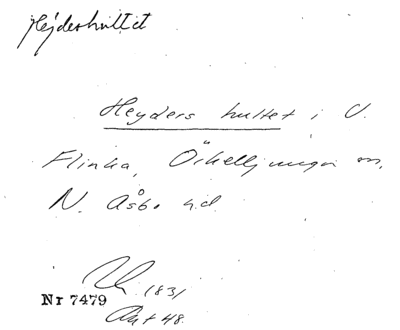 Hejdershultet
Heyders hultet i V.
Flinka, Örkelljunga sn,
N. Åsbo hd.
1831
Nr 7479
Akt 48.